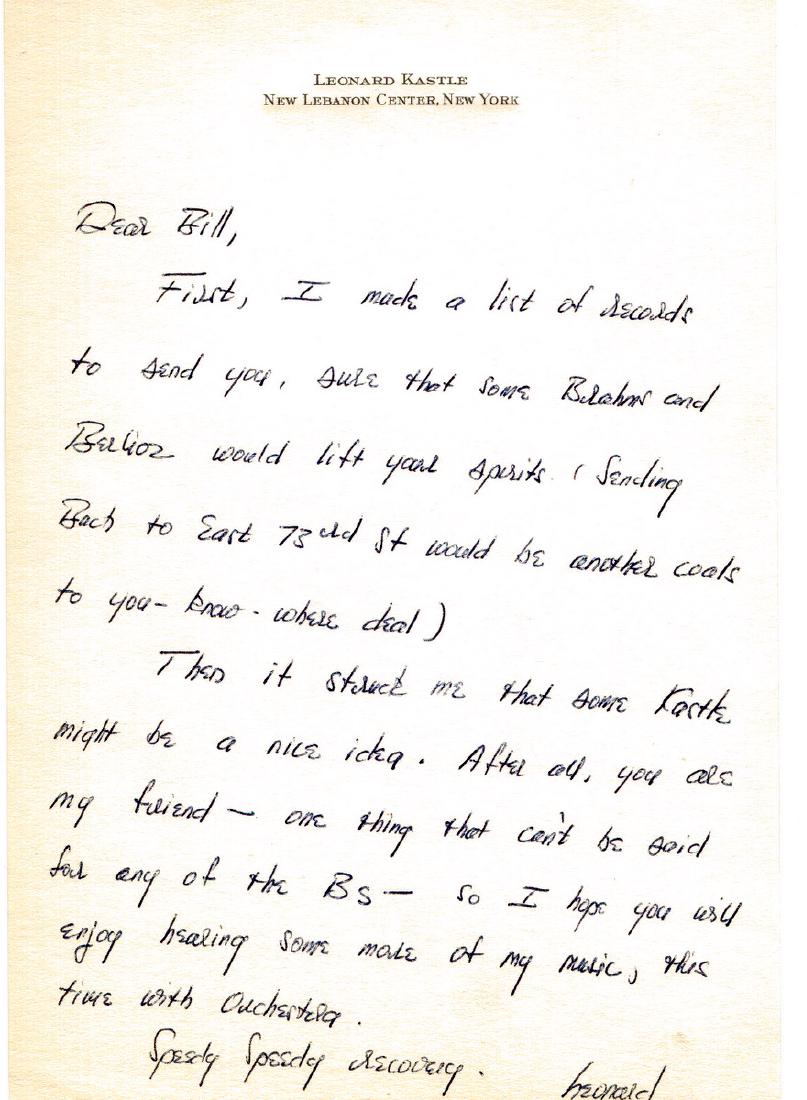 LEONARD KASTLE
NEW LEBANON CENTER, NEW YORK
Dear Bill,
First, I made a list of records
to send you, sure that some Brahms and
Berlioz would lift your spirits (Sending
Bach to East 73rd St would be another coals
to you-know-where deal)
Then it struck me that some Kastle
might be a nice idea. After all, you are
my friend — one thing that can't be said
for any of the Bs — so I hope you will
enjoy hearing some more of my music, this
time with Orchestra.
Speedy Speedy recovery.
Leonard